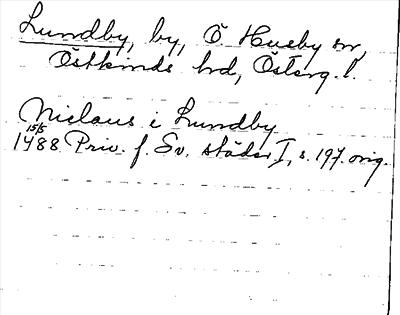 Lundby, by, Ö Husby sn,
Östkinds hd, Österg. l.
Niclaus i Lundby
15/5
1488 Priv. f. Sv. städer I, s. 197. orig.